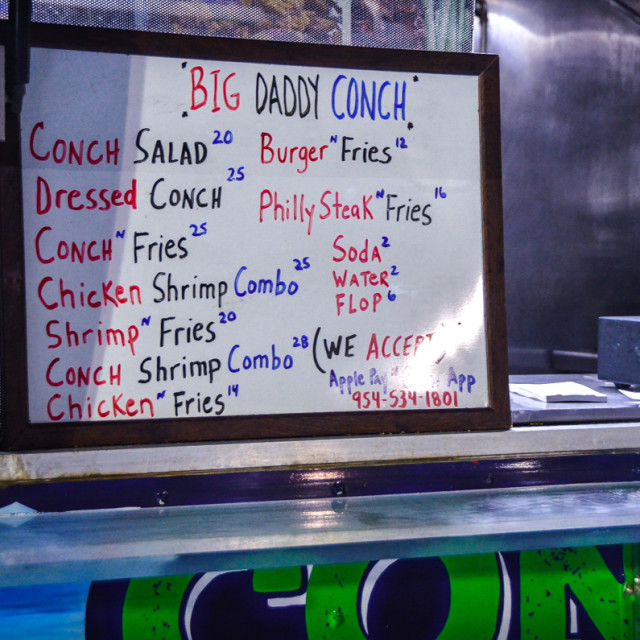 "BIG DADDY CONCH"
CONCH SALAD 20
Dressed CONCH 25
CONCH "N Fries 25
Chicken Shrimp Combo 25
Shrimp "N Fries 20
CONCH Shrimp Combo 28
Chicken "N Fries 14
Burger "N Fries 12
Philly Steak "N Fries 16
SODA 2
WATER 2
FLOP 6
(WE ACCEPT)
Apple Pay App
954-534-1801
CON